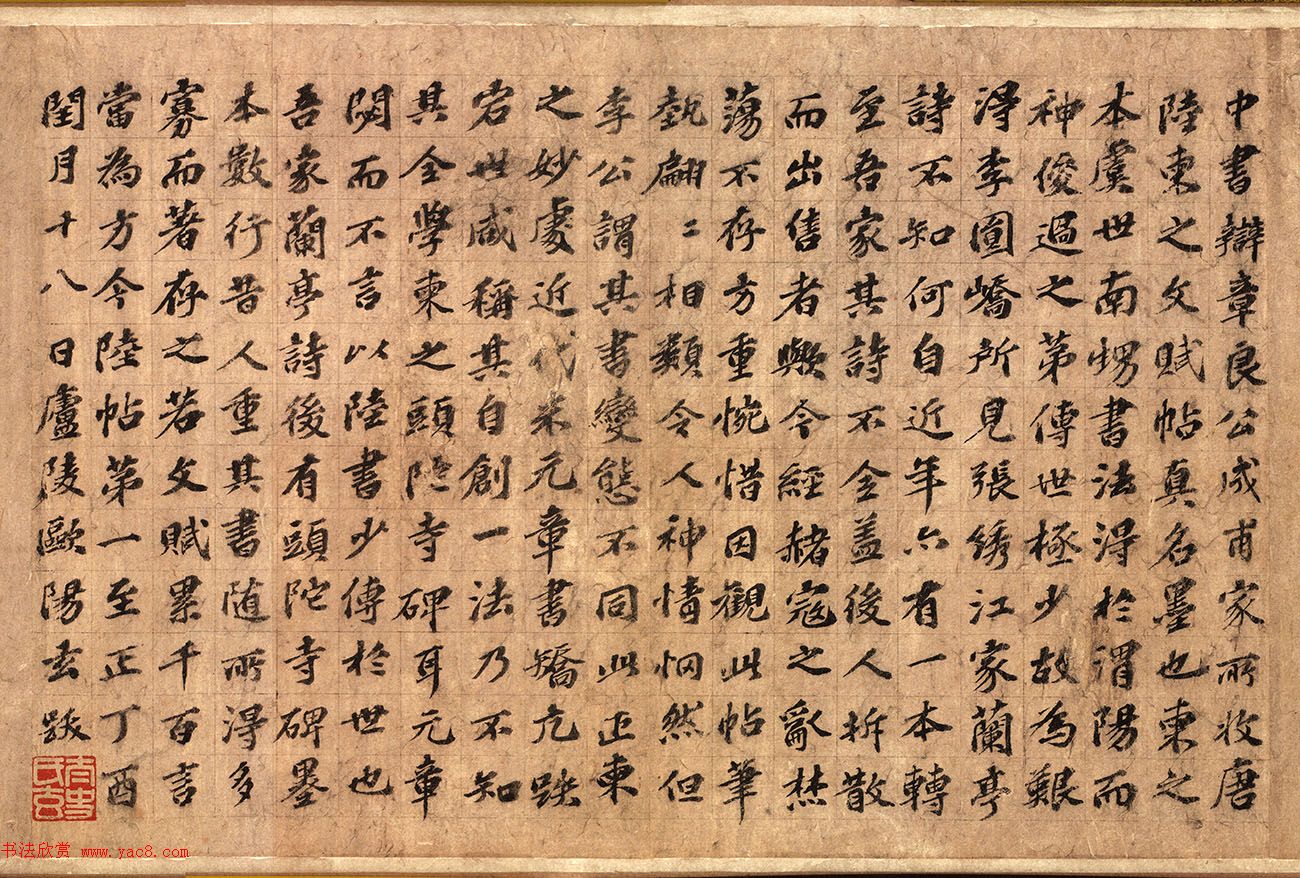 中書辯章良公成甫家所收唐
陸柬之文賦帖真名墨也柬之
本虞世南甥書法得於渭陽而
神俊過之第傳世極少故為艱
得李圓嶠所見張綉江家蘭亭
詩不知何自近年亦有一本轉
至吾家其詩不全盖後人拆散
而出售者歟今經赭寇之亂焚
蕩不存方重惋惜因觀此帖筆
埶翩〻相類令人神情惘然但
李公謂其書變態不同此正柬
之妙處近代米元章書矯亢跌
宕世咸稱其自創一法乃不知
其全學柬之頭陀寺碑耳元章
閟而不言以陸書少傳於世也
吾家蘭亭詩後有頭陀寺碑墨
本數行昔人重其書随所得多
寡而著存之若文賦累千百言
當為方今陸帖第一至正丁酉
閏月十八日廬陵歐陽玄跋
书法欣赏 www.yac8.com